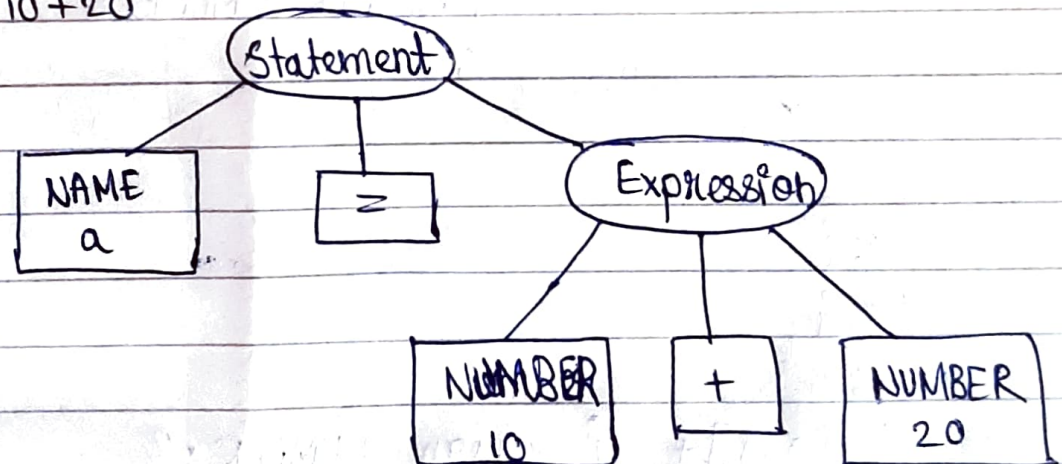 10+20
Statement
NAME
a
=
Expression
NUMBER
10
+
NUMBER
20